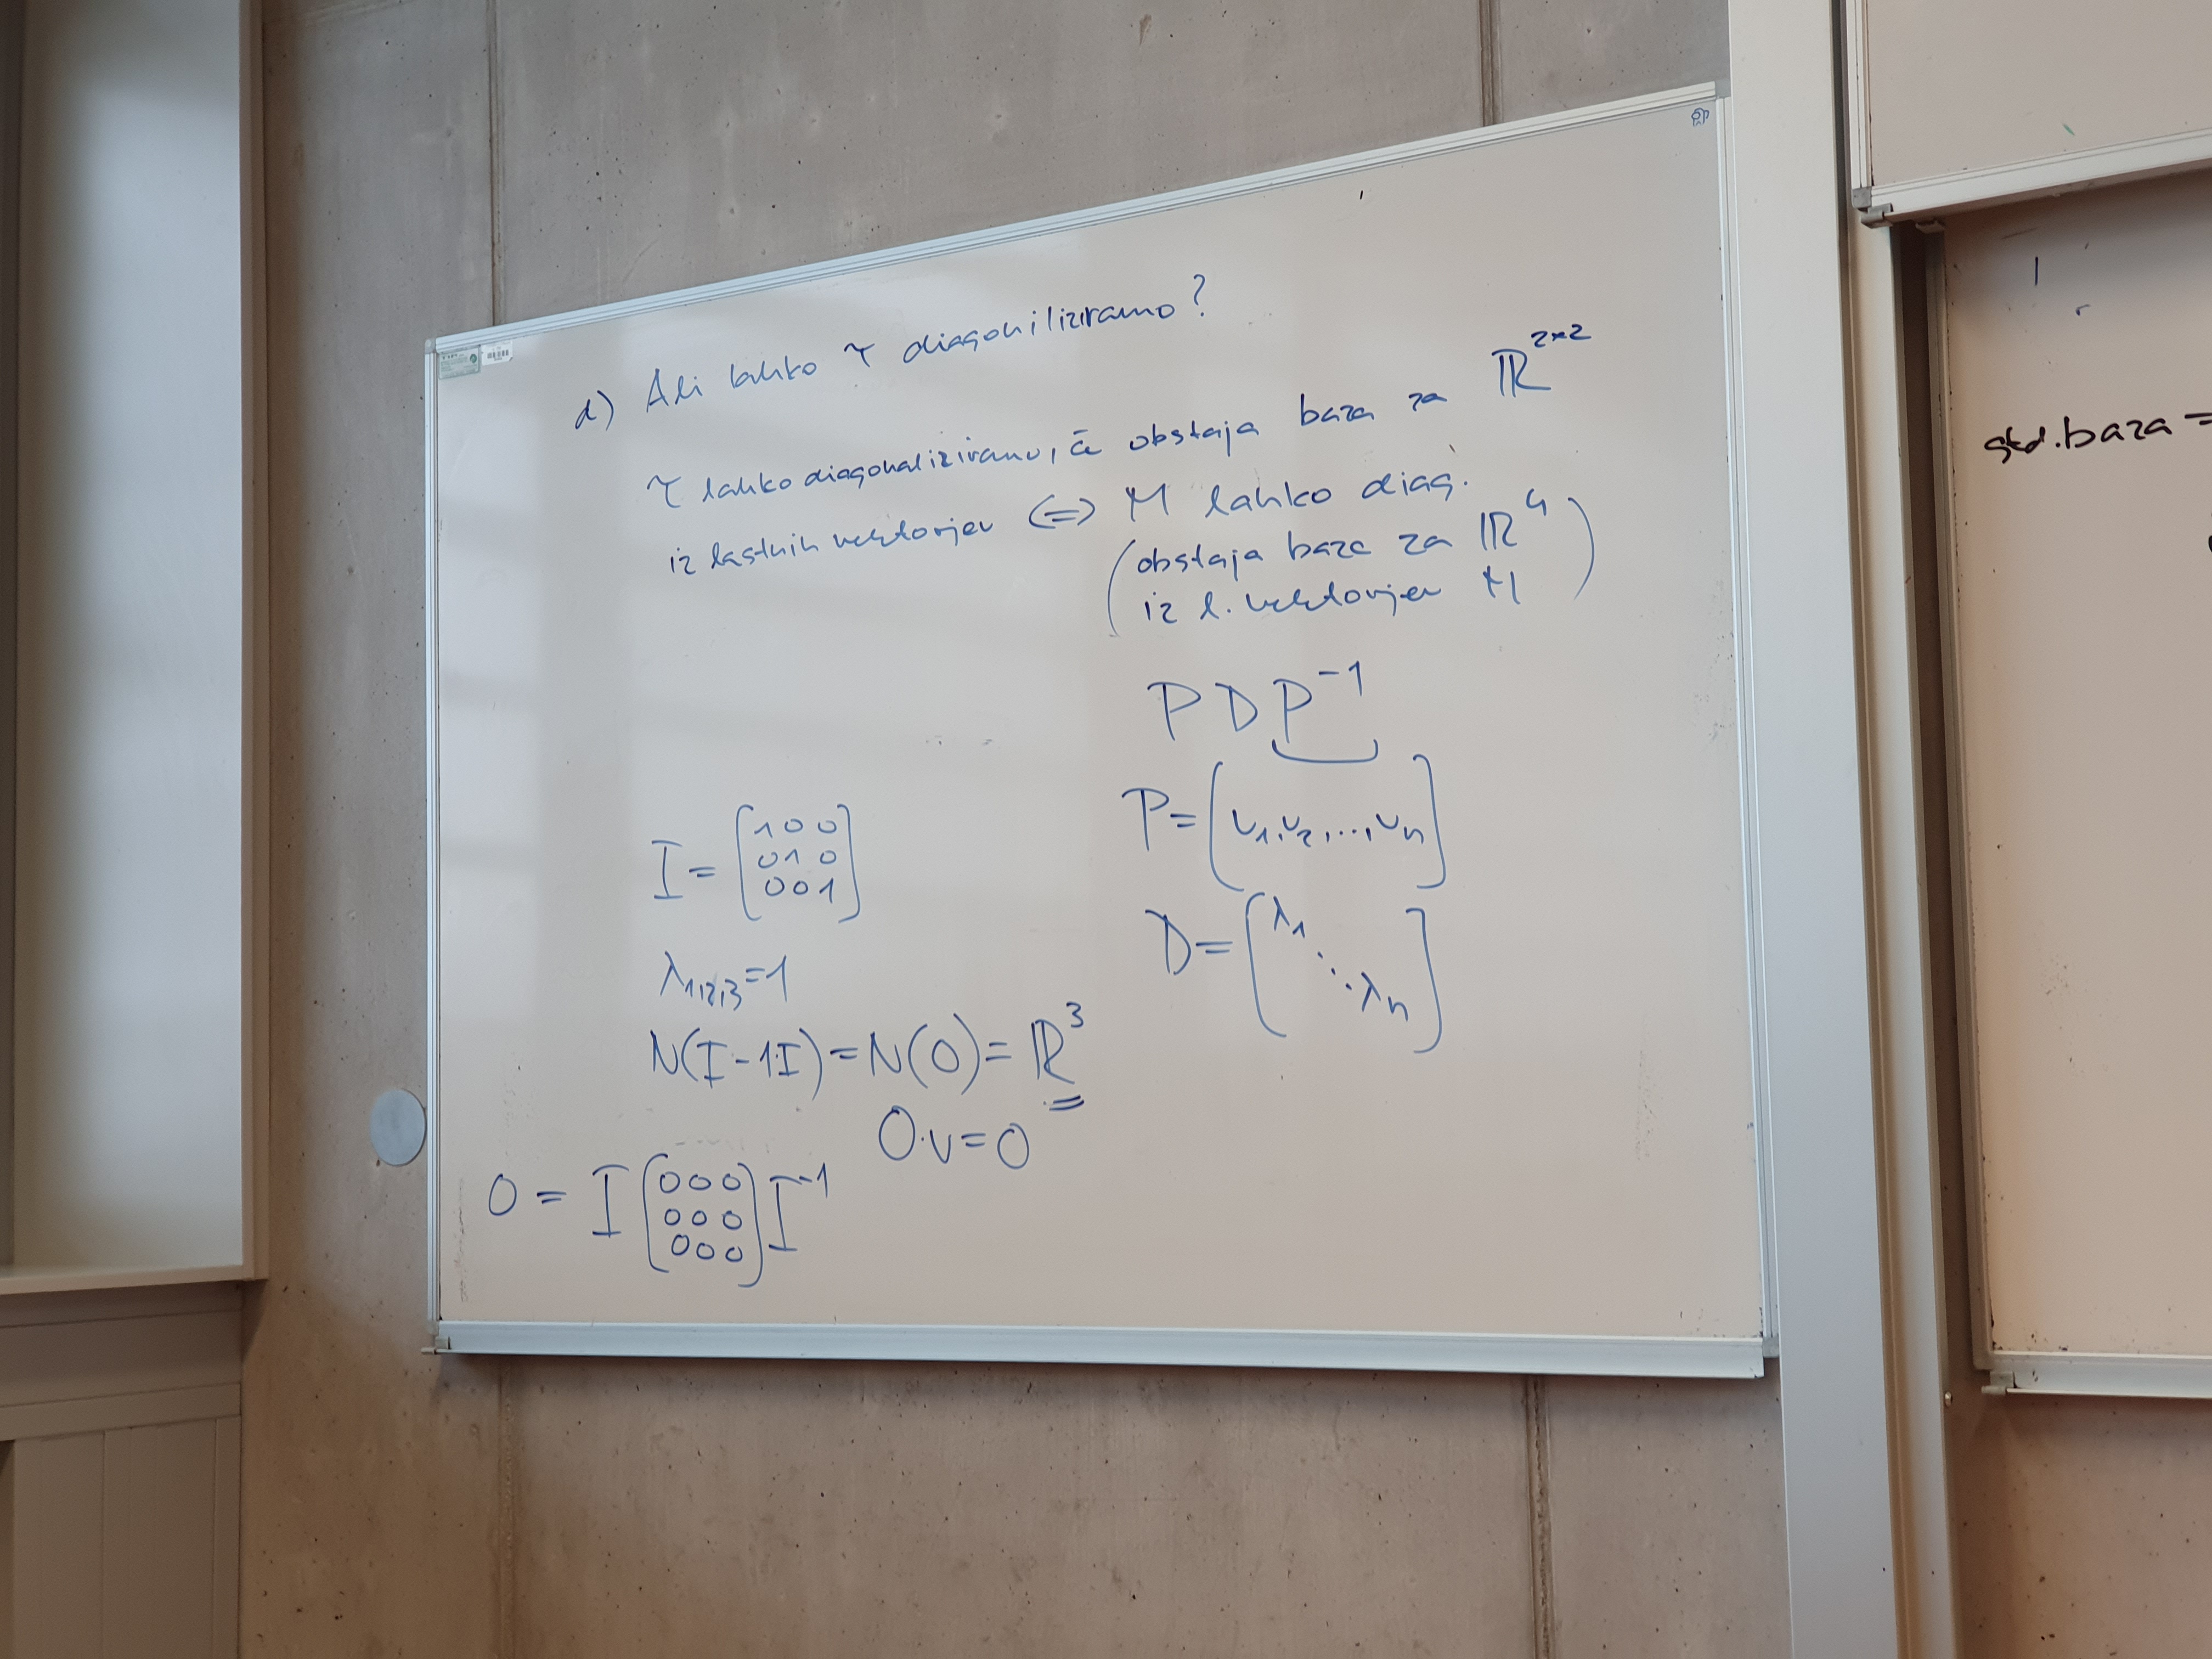 d) Ali lahko τ diagoniliziramo?
τ lahko diagonaliziramo, če obstaja baza za ℝ^{2×2}
iz lastnih vektorjev ⇔ M lahko diag.
(obstaja baza za ℝ^4
iz l. vektorjev M)
P D P^{-1}
P = [v_1, v_2, ..., v_n]
D = [λ_1 ⋱ λ_n]
I = [1 0 0
0 1 0
0 0 1]
λ_{1,2,3} = 1
N(I - 1·I) = N(0) = ℝ^3
0·v = 0
0 = I [0 0 0
0 0 0
0 0 0] I^{-1}
std. baza =